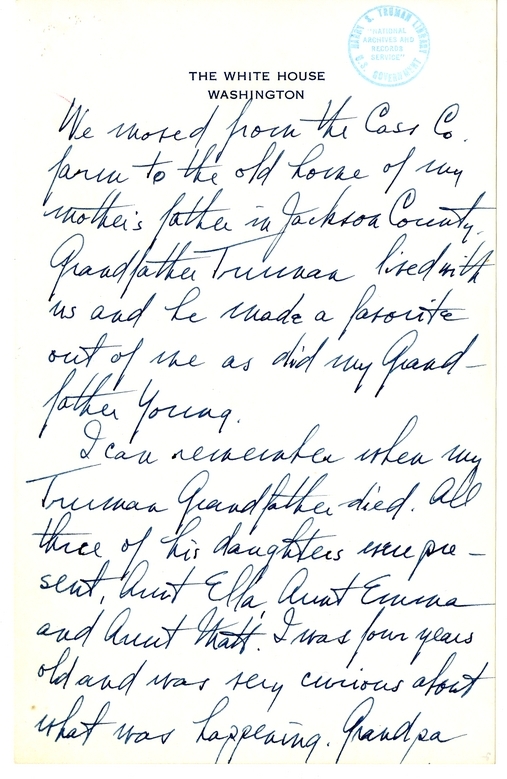 HARRY S. TRUMAN LIBRARY
"NATIONAL
ARCHIVES AND
RECORDS
SERVICE"
U.S. GOVERNMENT
THE WHITE HOUSE
WASHINGTON
We moved from the Cass Co.
farm to the old home of my
mother's father in Jackson County.
Grandfather Truman lived with
us and he made a favorite
out of me as did my Grand-
father Young.
I can remember when my
Truman Grandfather died. All
three of his daughters were pre-
sent, Aunt Ella, Aunt Emma
and Aunt Matt. I was four years
old and was very curious about
what was happening. Grandpa